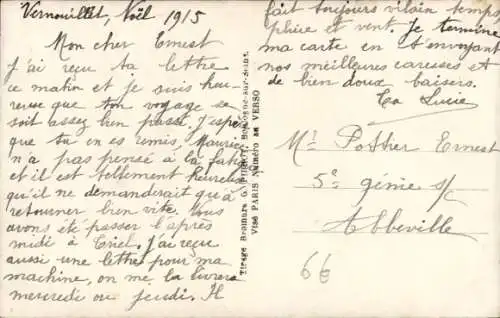 Vernouillet, Noël 1915
Mon cher Ernest
J'ai reçu ta lettre
ce matin et je suis heu-
reuse que ton voyage se
soit assez bien passé. J'espè
que tu en es remis, Maurice
n'a pas pensé à la fati
et il est tellement heureux
qu'il ne demanderait qu'à
retourner bien vite. Nous
avons été passer l'après
midi à Triel. J'ai reçu
aussi une lettre pour ma
machine, on me la livrera
mercredi ou jeudi. Il
fait toujours vilain temps
pluie et vent. Je termine
ma carte en t'envoyant
nos meilleures caresses et
de bien doux baisers.
Ta Lucie
Tirage Bromure G. Boulogne-sur-Seine.
Visé PARIS Numéro au VERSO
Mr Postier Ernest
5e génie s/c
Abbeville
6€